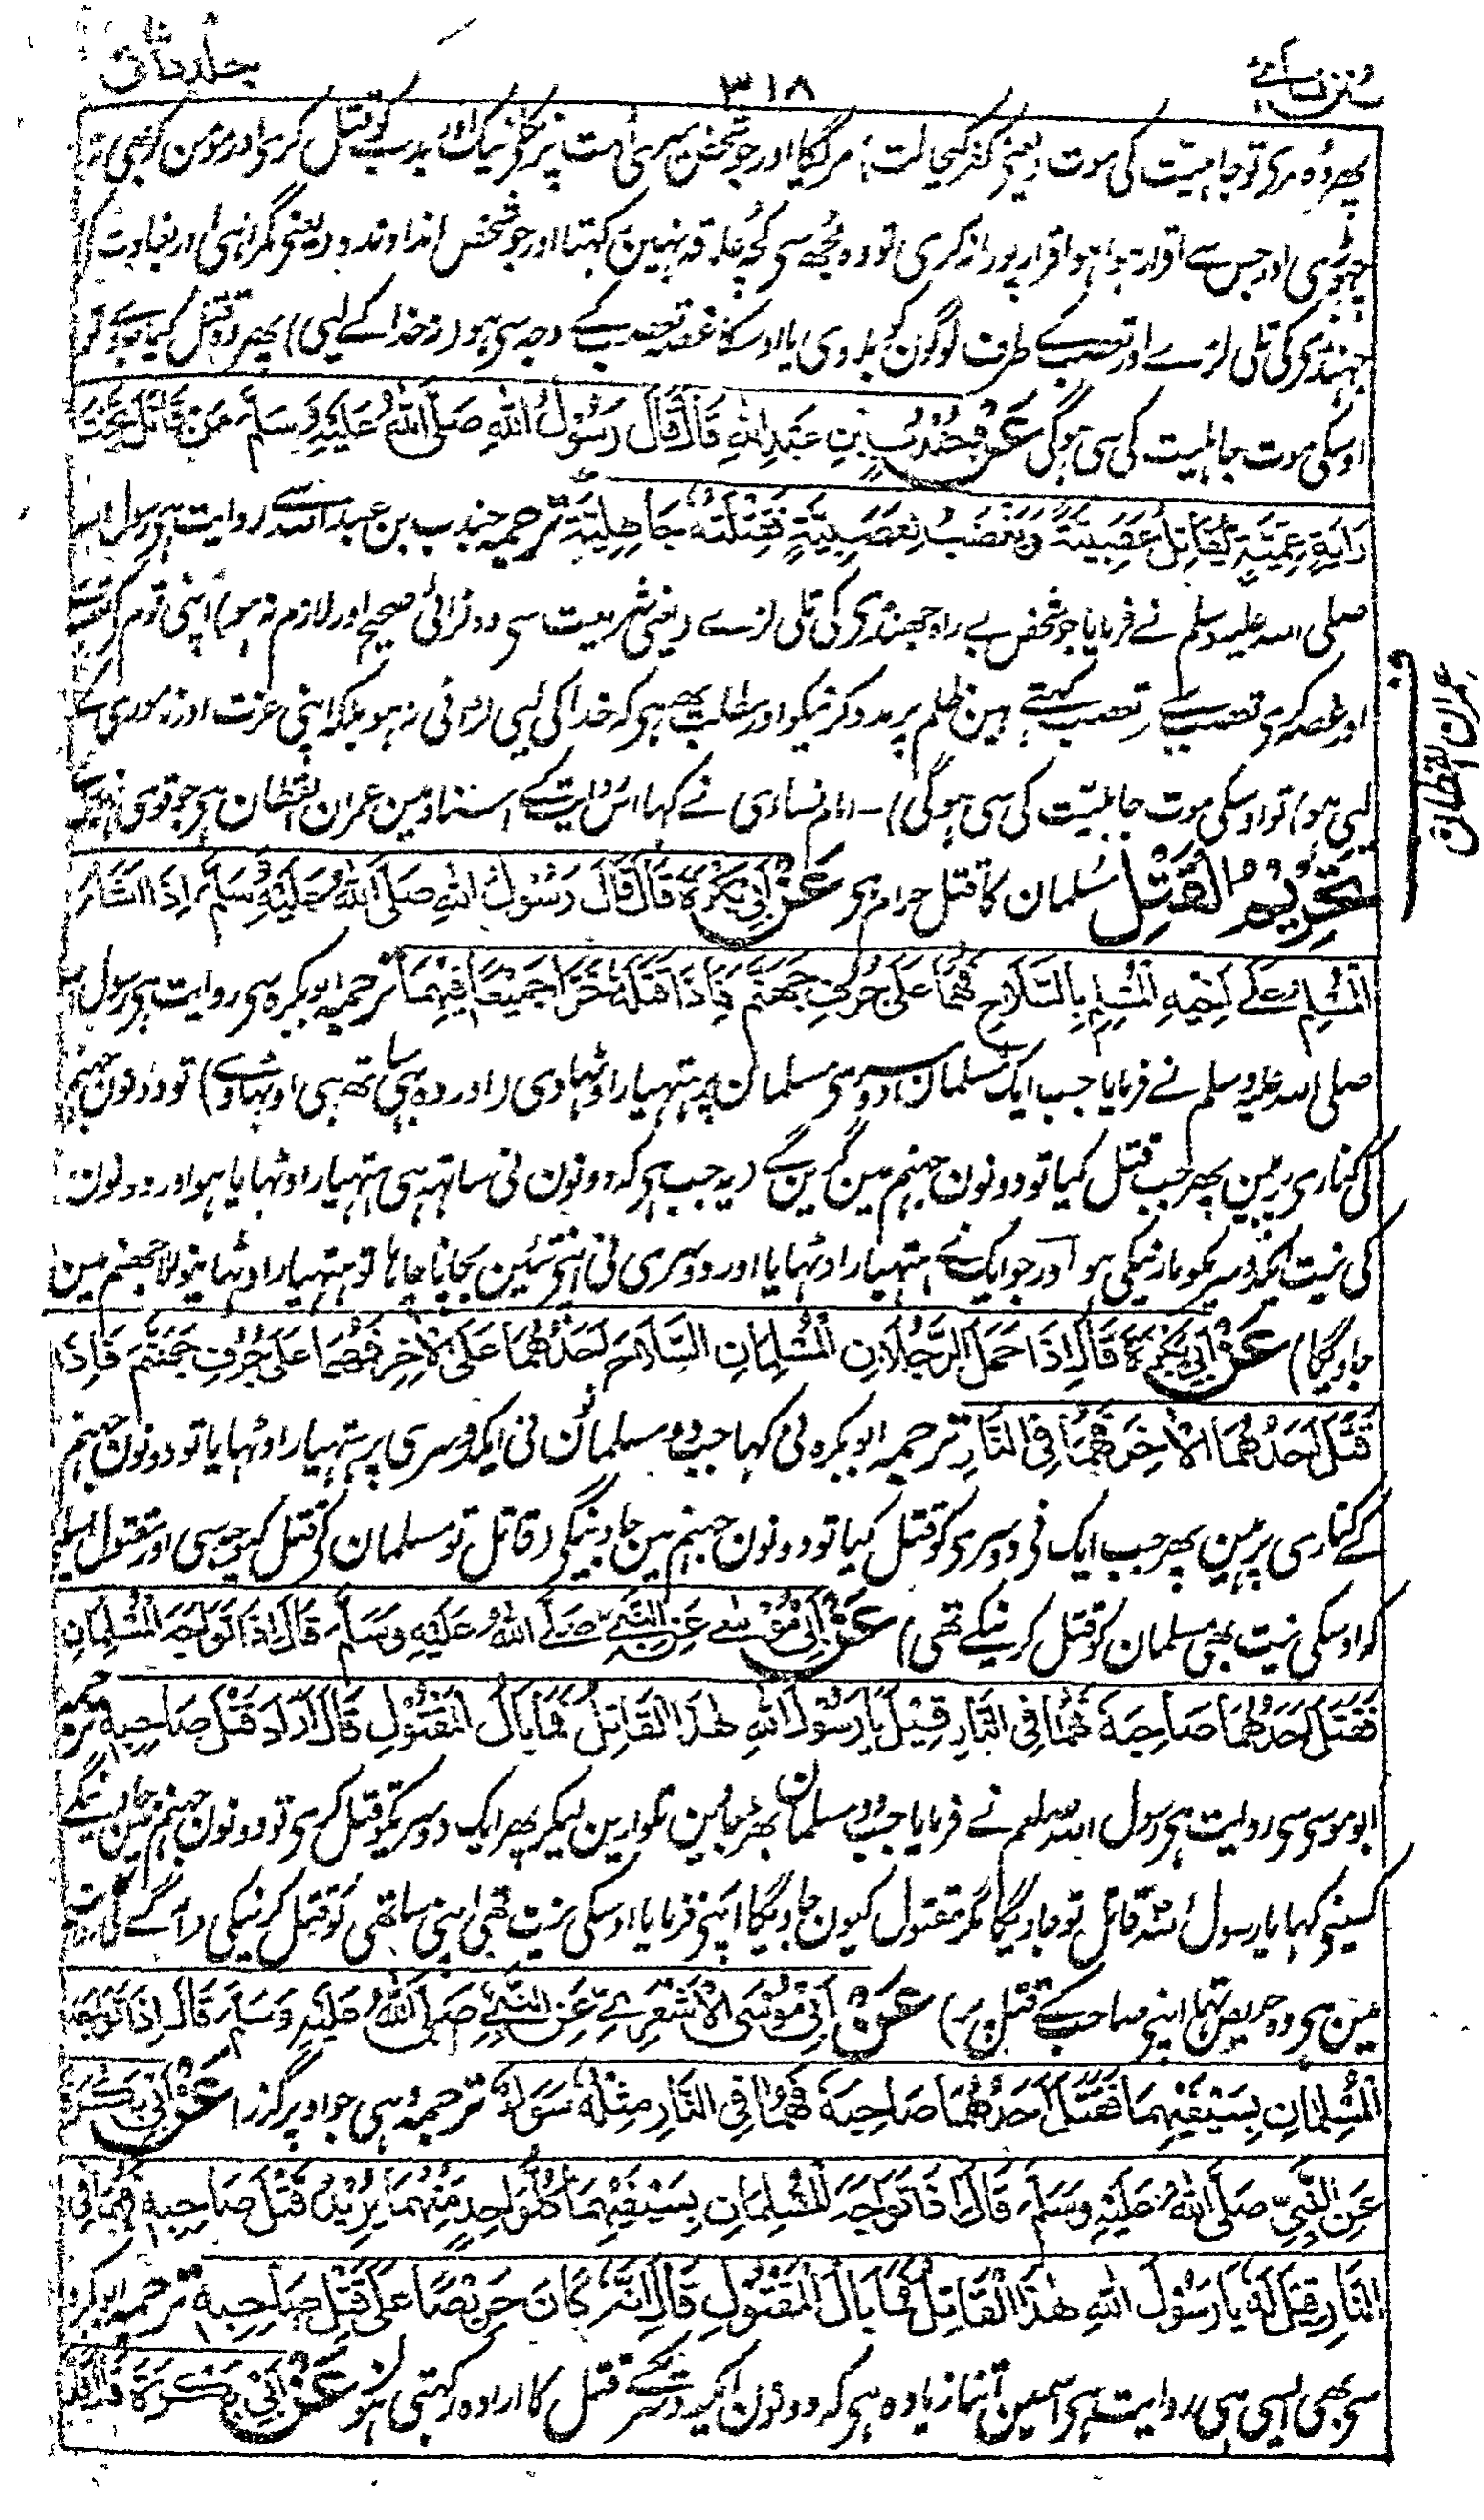 سنن نسائی ۳۱۸ جلد ثانی
پھر وہ مری تو جاہلیت کی موت (یعنی کفر کیحالت) مریگا اور جو شخص میری امت پر نکلے نیک اور بد سب کو قتل کری اور مومن کو بھی نہ
چھوڑی اور جس سے اقرار ہوا ہو اقرار پورا نہ کری تو وہ مجھ سی کچھ علاقہ نہین رکہتا اور جو شخص اندا دہند (یعنی گمراہی اور بغاوت کے
جہنڈی کی تلی لڑے اور تعصب کے طرف لوگون کو بلاوی یا اوسکا غصہ تعصب کے وجہ سی ہو (نہ خدا کے لیی) پھر وہ قتل کیا جاوے تو
اوسکی موت جاہلیت کی سی ہوگی عَنْ جُنْدُبِ بْنِ عَبْدِ اللهِ قَالَ قَالَ رَسُوْلُ اللهِ صَلَّى اللهُ عَلَيْهِ وَسَلَّمَ مَنْ قَاتَلَ تَحْتَ
رَايَةٍ عِمِّيَّةٍ يُقَاتِلُ عَصَبِيَّةً وَيَغْضَبُ لِعَصَبِيَّةٍ فَقِتْلَتُهُ جَاهِلِيَّةٌ ترجمہ جندب بن عبداللہ سے روایت ہی رسول اللہ
صلی اللہ علیہ وسلم نے فرمایا جو شخص بے راہ جھنڈی کی تلی لڑے (یعنی شریعت سی وہ لڑائی صحیح اور لازم نہ ہو) اپنی قوم کی
اور غصہ کری تعصب سے (تعصب کہتے ہین ظلم پر مدد کرنیکو اور مطلب یھہ ہی کہ خدا کی لیی لڑائی نہ ہو بلکہ اپنی عزت اور ناموری کے
لیی ہو) تو اوسکی موت جاہلیت کی سی ہوگی)۔ امام نسائی نے کہا اس روایت کے اسناد مین عمران القطان ہی جو قوی نہین
عمران القطان
تَحْرِيْمُ الْقَتْلِ مسلمان کا قتل حرام ہی عَنْ أَبِيْ بَكْرَةَ قَالَ قَالَ رَسُوْلُ اللهِ صَلَّى اللهُ عَلَيْهِ وَسَلَّمَ إِذَا أَشَارَ
الْمُسْلِمُ عَلٰى أَخِيْهِ الْمُسْلِمِ بِالسِّلَاحِ فَهُمَا عَلٰى جُرُفِ جَهَنَّمَ فَإِذَا قَتَلَهُ خَرَّا جَمِيْعًا فِيْهَا ترجمہ ابو بکرہ سی روایت ہی رسول اللہ
صلی اللہ علیہ وسلم نے فرمایا جب ایک مسلمان دوسری مسلمان پر ہتہیار اوٹہاوی (اور وہ بہی ساتھ ہی اوٹہاوے) تو دونون جہنم
کی کناری پر ہین پھر جب قتل کیا تو دونون جہنم مین گرین گے (یہ جب ہی کہ دونون نی ساتہہ ہی ہتہیار اوٹہایا ہو اور دونون
کی نیت ایکدوسریکو مارنیکی ہو اور جو ایک نے ہتہیار اوٹہایا اور دوسری نی اپنی تئین بچانا چاہا تو ہتہیار اوٹہانیوالا جہنم مین
جاویگا) عَنْ أَبِيْ بَكْرَةَ قَالَ إِذَا حَمَلَ الرَّجُلَانِ الْمُسْلِمَانِ السِّلَاحَ أَحَدُهُمَا عَلَى الْاٰخَرِ فَهُمَا عَلٰى جُرُفِ جَهَنَّمَ فَإِذَا
قَتَلَ أَحَدُهُمَا الْاٰخَرَ فَهُمَا فِي النَّارِ ترجمہ ابو بکرہ نی کہا جب دو مسلمانون نی ایکدوسری پر ہتہیار اوٹہایا تو دونون جہنم
کے کناری پر ہین پھر جب ایک نی دوسری کو قتل کیا تو دونون جہنم مین جاوینگی (قاتل تو مسلمان کی قتل کیوجہ سی اور مقتول اسلیی
کہ اوسکی نیت بھی مسلمان کو قتل کرنیکے تھی) عَنْ أَبِيْ مُوْسٰى عَنِ النَّبِيِّ صَلَّى اللهُ عَلَيْهِ وَسَلَّمَ قَالَ إِذَا تَوَاجَهَ الْمُسْلِمَانِ
فَقَتَلَ أَحَدُهُمَا صَاحِبَهُ فَهُمَا فِي النَّارِ قِيْلَ يَا رَسُوْلَ اللهِ هٰذَا الْقَاتِلُ فَمَا بَالُ الْمَقْتُوْلِ قَالَ أَرَادَ قَتْلَ صَاحِبِهِ ترجمہ
ابو موسی سی روایت ہی رسول اللہ صلعم نے فرمایا جب دو مسلمان بھڑ جاہین تلوارین لیکر پھر ایک دوسریکو قتل کری تو دونون جہنم مین جاوینگے
کسینی کہا یا رسول اللہ قاتل تو جاویگا مگر مقتول کیون جاویگا اپنی فرمایا اوسکی نیت تھی اپنی ساتھی کو قتل کرنیکی (آگے کی روایت
مین ہی وہ حریص تہا اپنی صاحب کے قتل پر) عَنْ أَبِيْ مُوْسَى الْأَشْعَرِيِّ عَنِ النَّبِيِّ صَلَّى اللهُ عَلَيْهِ وَسَلَّمَ قَالَ إِذَا تَوَاجَهَ
الْمُسْلِمَانِ بِسَيْفَيْهِمَا فَقَتَلَ أَحَدُهُمَا صَاحِبَهُ فَهُمَا فِي النَّارِ مِثْلَهُ سَوَاءً ترجمہ وہی جو اوپر گزرا عَنْ أَبِيْ بَكْرَةَ
عَنِ النَّبِيِّ صَلَّى اللهُ عَلَيْهِ وَسَلَّمَ قَالَ إِذَا تَوَاجَهَ الْمُسْلِمَانِ بِسَيْفَيْهِمَا كُلُّ وَاحِدٍ مِنْهُمَا يُرِيْدُ قَتْلَ صَاحِبِهِ فَهُمَا فِي
النَّارِ قِيْلَ لَهُ يَا رَسُوْلَ اللهِ هٰذَا الْقَاتِلُ فَمَا بَالُ الْمَقْتُوْلِ قَالَ إِنَّهُ كَانَ حَرِيْصًا عَلٰى قَتْلِ صَاحِبِهِ ترجمہ ابو بکرہ
سی بھی ایسی ہی روایت ہی اسمین اتنا زیادہ ہی کہ دونون ایکدوسرے کے قتل کا ارادہ رکہتی ہون عَنْ أَبِيْ بَكْرَةَ قَالَ قَالَ